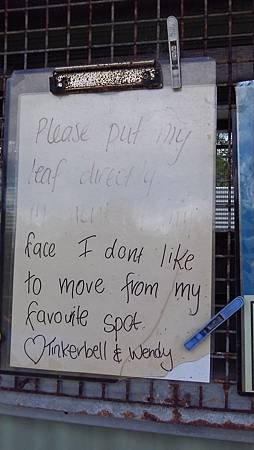 Please put my
leaf directly
in
face I dont like
to move from my
favourite spot.
♡Tinkerbell & Wendy